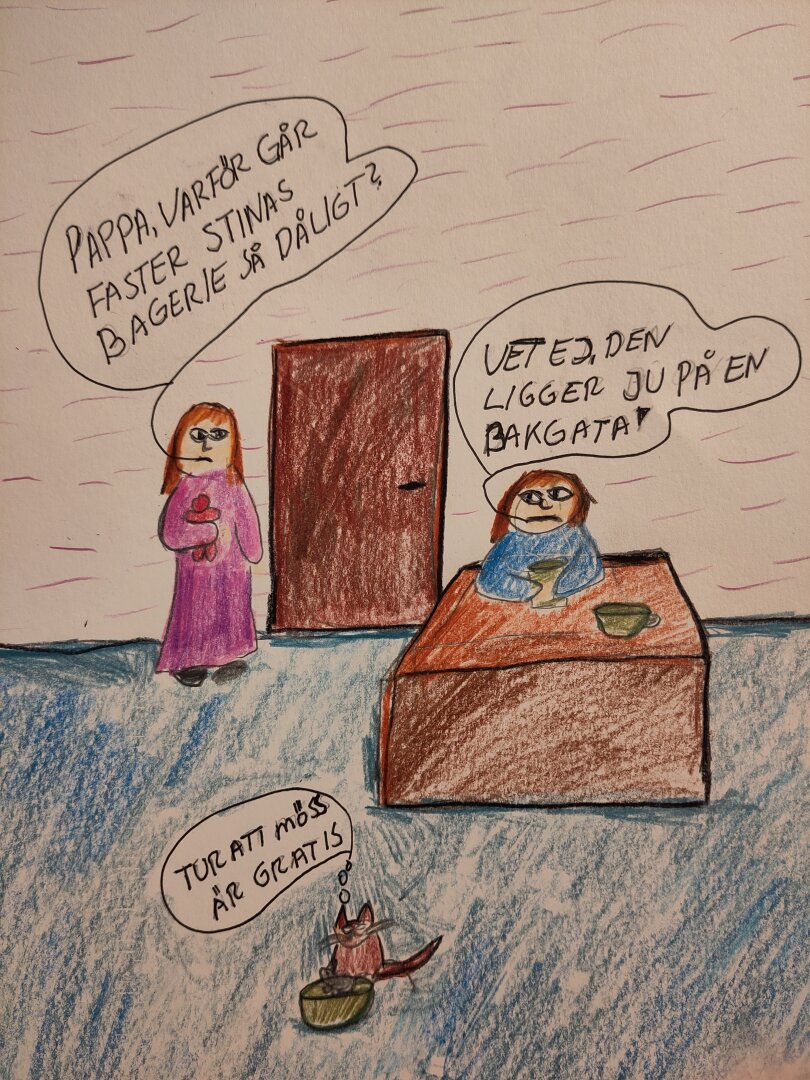 PAPPA, VARFÖR GÅR
FASTER STINAS
BAGERIE SÅ DÅLIGT?
VET EJ, DEN
LIGGER JU PÅ EN
BAKGATA!
TUR ATT MÖSS
ÄR GRATIS